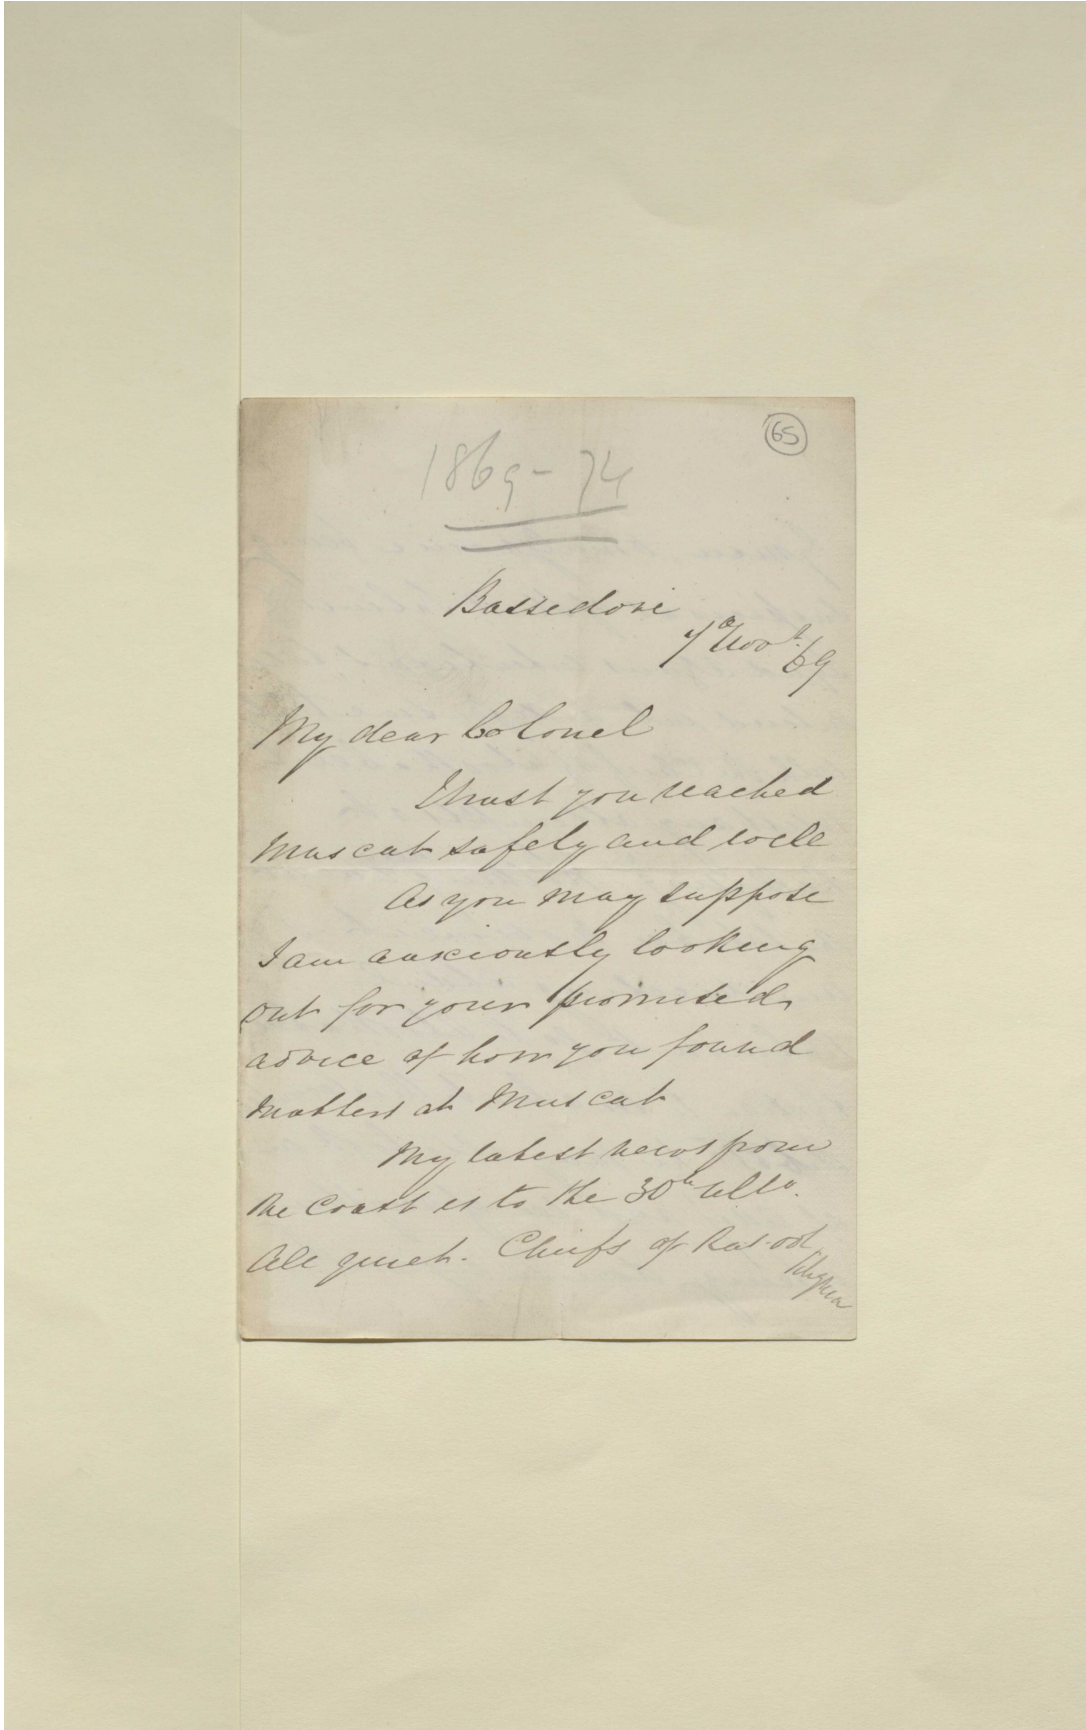 65
1869-74
Bassedore
7th Novr. 69
My dear Colonel
I trust you reached
Muscat safely and well
As you may suppose
I am anxiously looking
out for your promised
advice of how you found
matters at Muscat
My latest news from
the Coast is to the 30th ulto.
All quiet. Chiefs of Ras-ool
Khyma